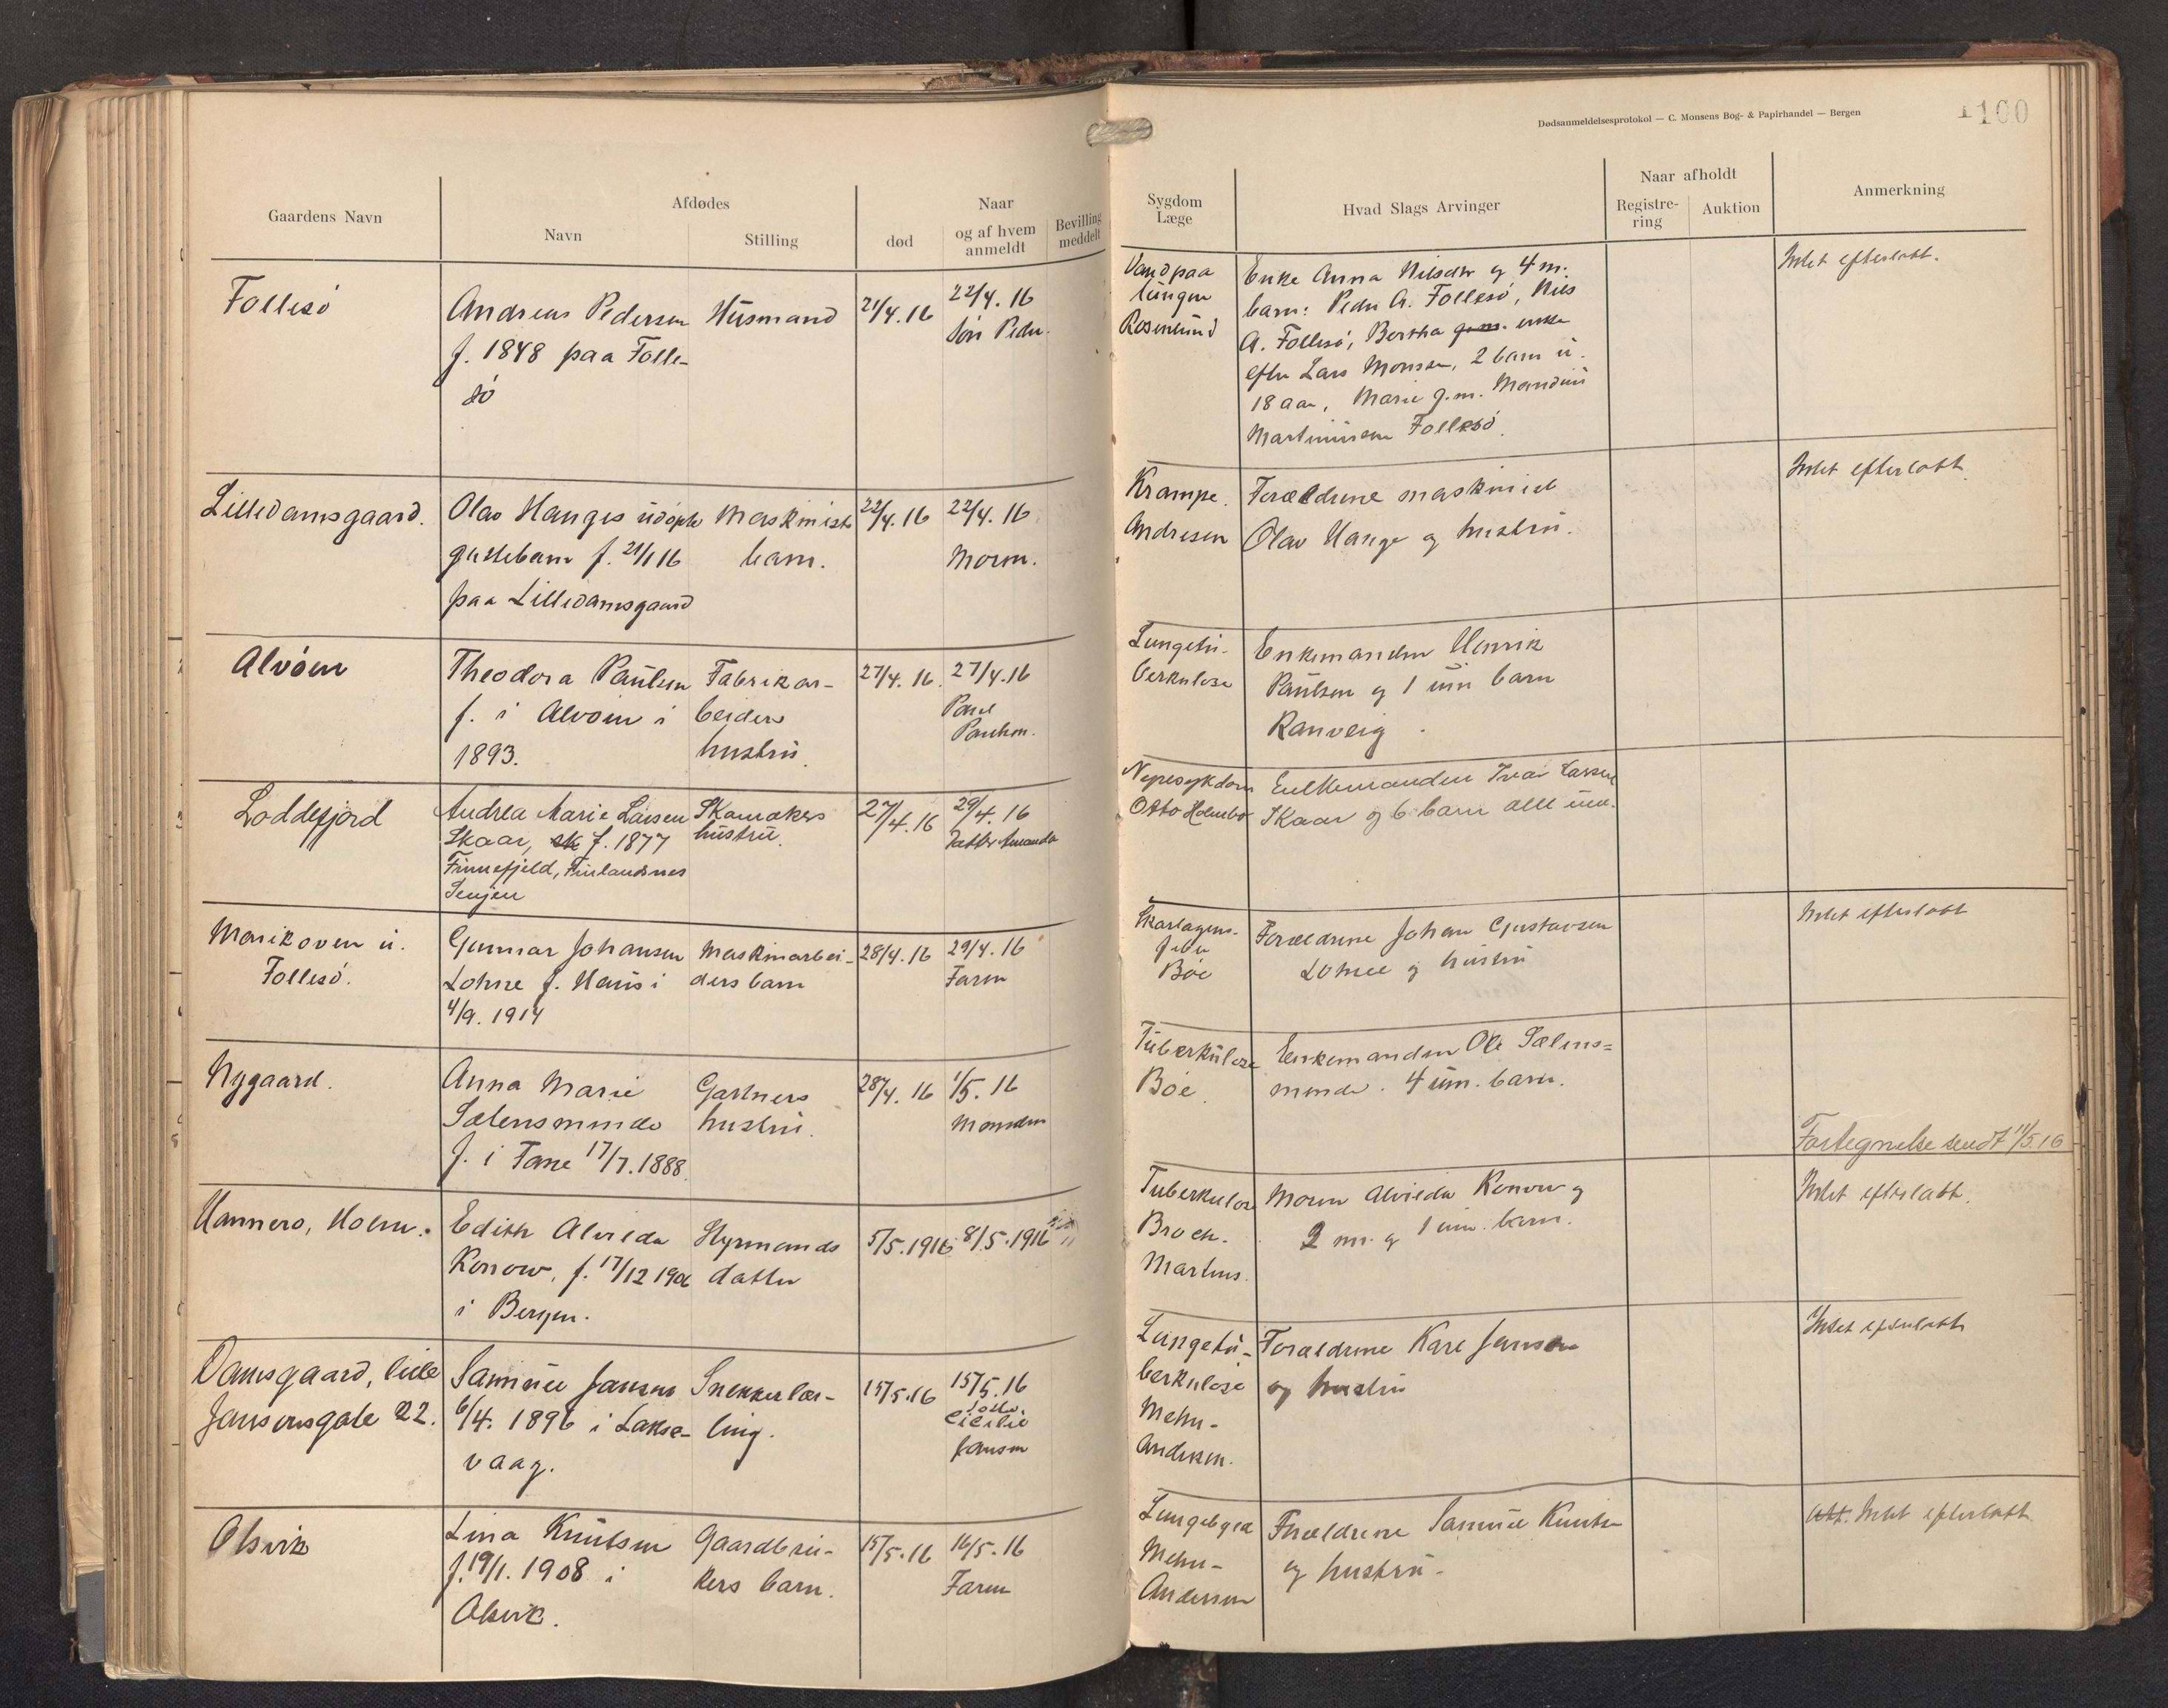 Dødsanmeldelsesprotokol — C. Monsens Bog- & Papirhandel — Bergen
1100
Gaardens Navn
Afdødes
Navn
Stilling
død
Naar
og af hvem
anmeldt
Bevilling
meddelt
Sygdom
Læge
Hvad Slags Arvinger
Naar afholdt
Registre-
ring
Auktion
Anmerkning
Follesö
Andreas Pedersen
f. 1848 paa Folle-
sö
Husmand
21/4.16
22/4.16
Sön Peder
Vand paa
lungen
Rosenlund
Enke Anna Nilsdtr og 4 m.
barn: Peder A. Follesö, Nils
A. Follesö, Bertha g.m. enke
efter Lars Monsen, 2 barn u.
18 aar, Marie g.m. Mandius
Martinussen Follesö.
Intet efterladt.
Lilledamsgaard.
Olav Hanges udöpte
guttebarn f. 21/1 16
paa Lilledamsgaard
Maskinist
barn.
22/4.16
22/4.16
Moren.
Krampe.
Andresen
Forældrene maskinist
Olav Hange og hustru.
Intet efterladt
Alvöen
Theodora Paulsen
f. i Alvöen i
1893.
Fabrikar-
beiders
hustru.
27/4.16.
27/4.16
Paul
Paulsen.
Lungetu-
berkulose
Enkemanden Henrik
Paulsen og 1 um barn
Ranveig
Loddefjord
Andrea Marie Larsen
Skaar, f. 1877
Finnefjeld, Finlandsnes
Senjen
Skomakers
hustru.
27/4.16
29/4.16
Datter Amanda
Nyresykdom
Otto Holmbo
Enkemanden Ivar Larsen
Skaar og 6 barn alle um.
Marikoven u.
Follesö.
Gunnar Johansen
Lohne f. Haus i
4/9.1914
Maskinarbei-
ders barn
28/4.16
29/4.16
Faren
Skarlagens-
feber
Böe
Forældrene Johan Gustavsen
Lohne og hustru
Intet efterladt
Nygaard.
Anna Marie
Sælensminde
f. i Fane 17/7.1888
Gartners
hustru.
28/4.16
1/5.16
Manden
Tuberkulose
Böe.
Enkemanden Ole Sælens=
minde. 4 um. barn.
Fortegnelse sendt 11/5 16
Hannero, Holen.
Edith Alvilda
Konow, f. 17/12 190
i Bergen.
Styrmands
datter
5/5.1916
8/5.1916
Tuberkulose
Broch.
Martens.
Moren Alvilda Konow og
2 m. og 1 um. barn.
Intet efterladt.
Damsgaard, lille
Jansonsgate 22.
Samuel Jansen
6/4.1896 i Lakse-
vaag.
Snekkerlær-
ling.
15/5.16
15/5.16
Cicilie
Jansen
Lungetu-
berkulose
Mehn-
Andersen.
Forældrene Karl Jansen
og hustru
Intet efterladt
Olsvik
Lina Knutsen
f. 19/1.1908 i
Olsvik.
Gaardbru-
kers barn.
15/5.16
16/5.16
Faren
Lungebyld
Mehn-
Andersen
Forældrene Samuel Knutsen
og hustru.
Intet efterladt